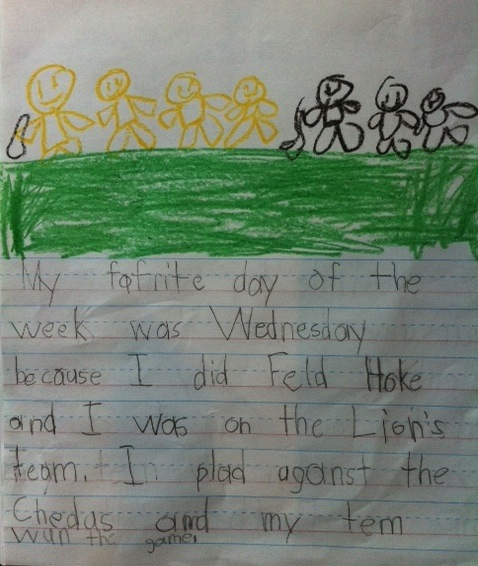 My fafrite day of the
week was Wednesday
because I did Feld Hoke
and I was on the Lion's
team. I plad aganst the
Chedas and my tem
wun the game.